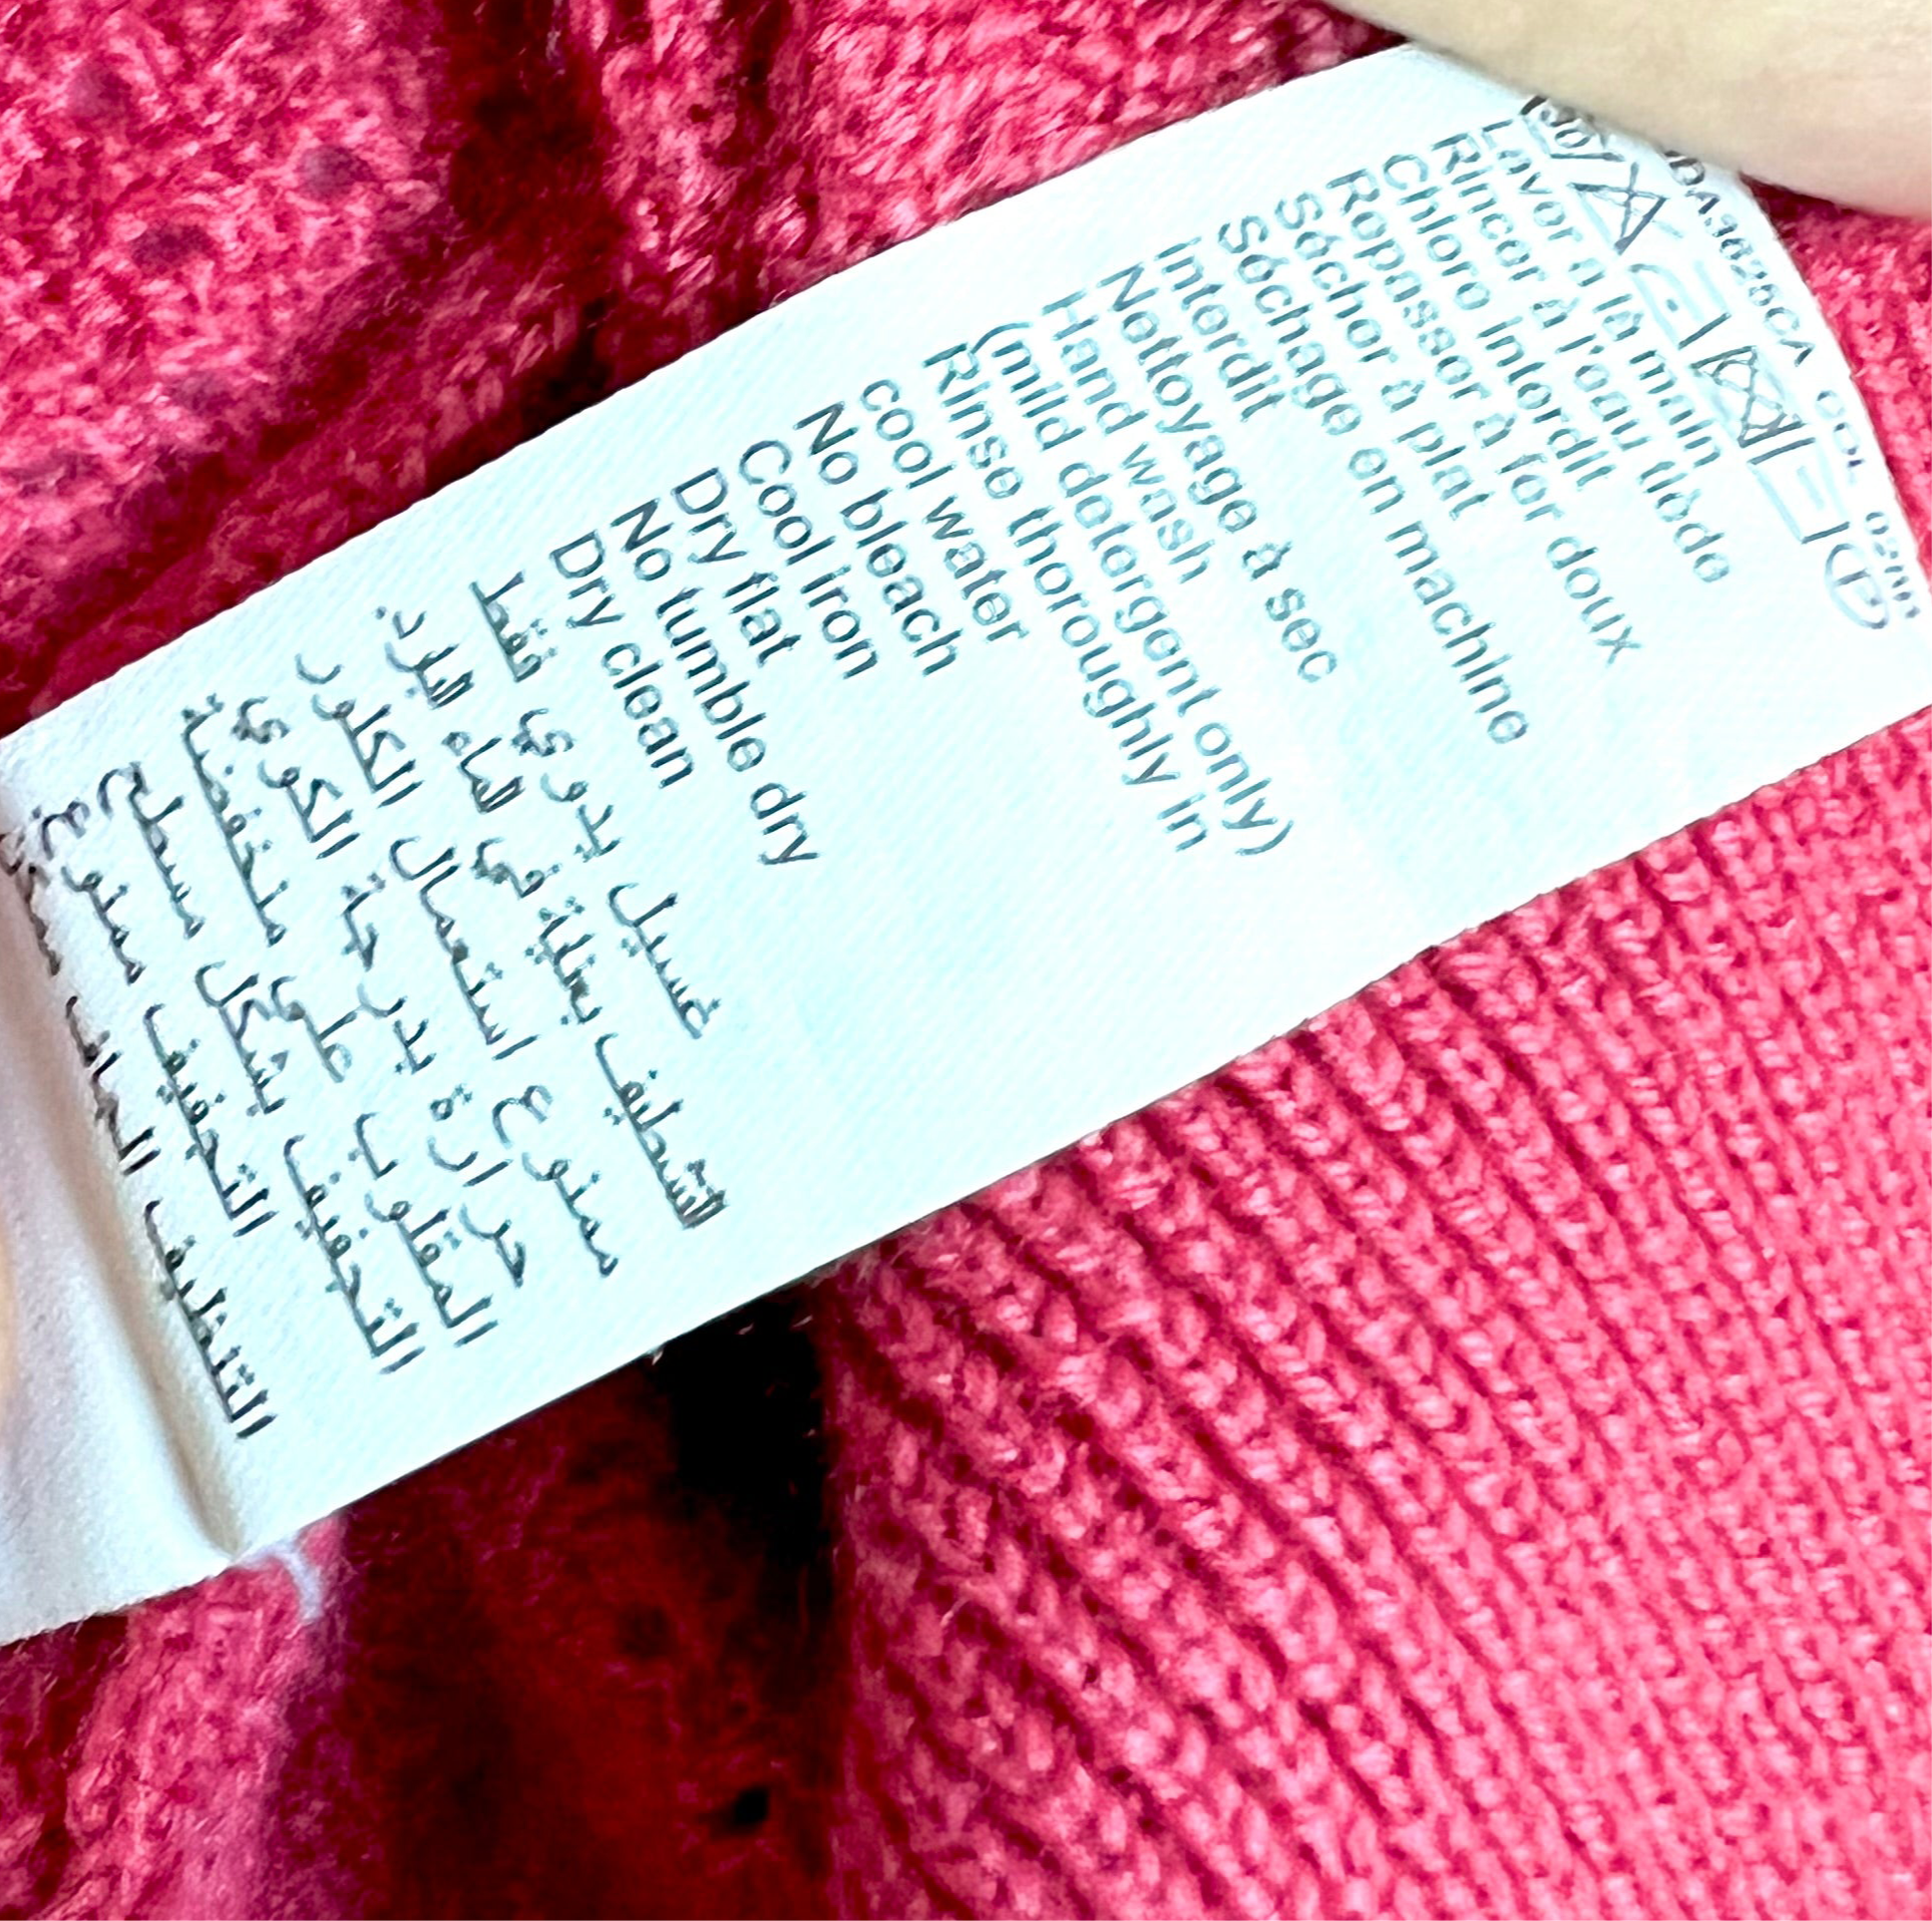 Laver à la main
Rincer à l'eau tiède
Chlore interdit
Repasser à fer doux
Sécher à plat
Séchage en machine
interdit
Nettoyage à sec
Hand wash
(mild detergent only)
Rinse thoroughly in
cool water
No bleach
Cool iron
Dry flat
No tumble dry
Dry clean
غسيل يدوي فقط
التشطيف بعناية في الماء البارد
ممنوع استعمال الكلور
حرارة بدرجة الكوي
المقلوب على منخفضة
التجفيف بشكل مسطح
التجفيف ممنوع
التنظيف الجاف